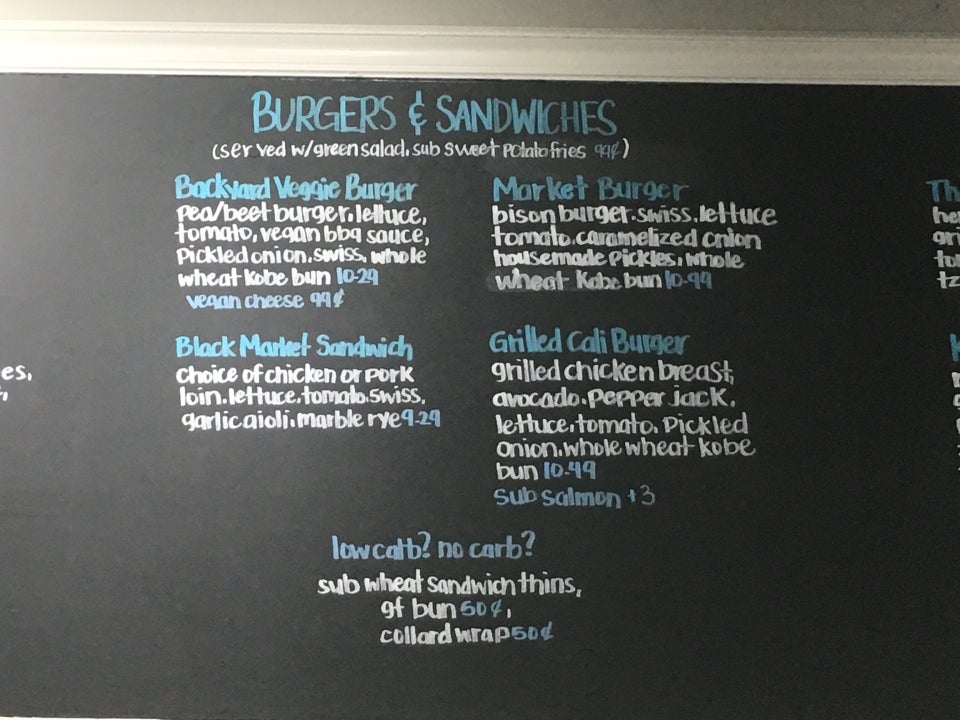 BURGERS & SANDWICHES
(served w/green salad, sub sweet potato fries 99¢)
Backyard Veggie Burger
pea/beet burger, lettuce,
tomato, vegan bbq sauce,
pickled onion, swiss, whole
wheat kobe bun 10.29
vegan cheese 99¢
Black Market Sandwich
choice of chicken or pork
loin, lettuce, tomato, swiss,
garlic aioli, marble rye 9.29
Market Burger
bison burger, swiss, lettuce
tomato, caramelized onion
housemade pickles, whole
wheat Kobe bun 10.99
Grilled Cali Burger
grilled chicken breast,
avocado, pepper jack,
lettuce, tomato, pickled
onion, whole wheat kobe
bun 10.49
sub salmon +3
low carb? no carb?
sub wheat sandwich thins,
gf bun 50¢,
collard wrap 50¢
es,